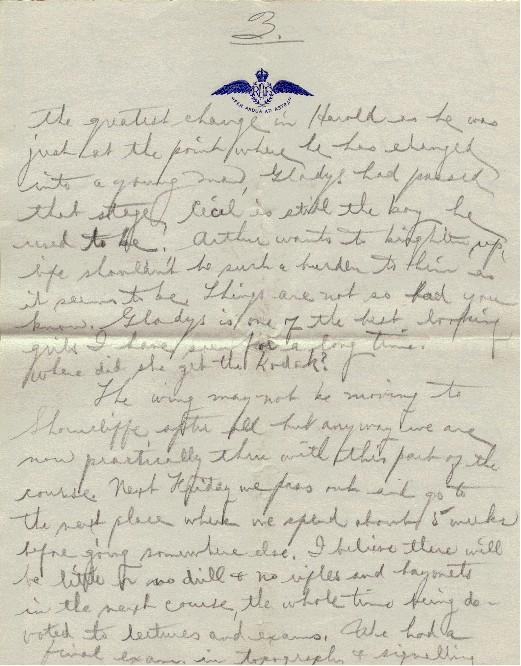 3.
PER ARDUA AD ASTRA
the greatest change in Harold as he was
just at the point where he has changed
into a young man, Gladys had passed
that stage, Cecil is still the boy he
used to be. Arthur wants to brighten up,
life shouldn't be such a burden to him as
it seems to be. Things are not so bad you
know. Gladys is one of the best looking
girls I have seen for a long time.
Where did she get the Kodak?
The wing may not be moving to
Shorncliffe after all but anyway we are
now practically thru with this part of the
course. Next Friday we pass out and go to
the next place where we spend about 5 weeks
before going somewhere else. I believe there will
be little or no drill & no rifles and bayonets
in the next course, the whole time being de-
voted to lectures and exams. We had a
final exam. in topography & signalling